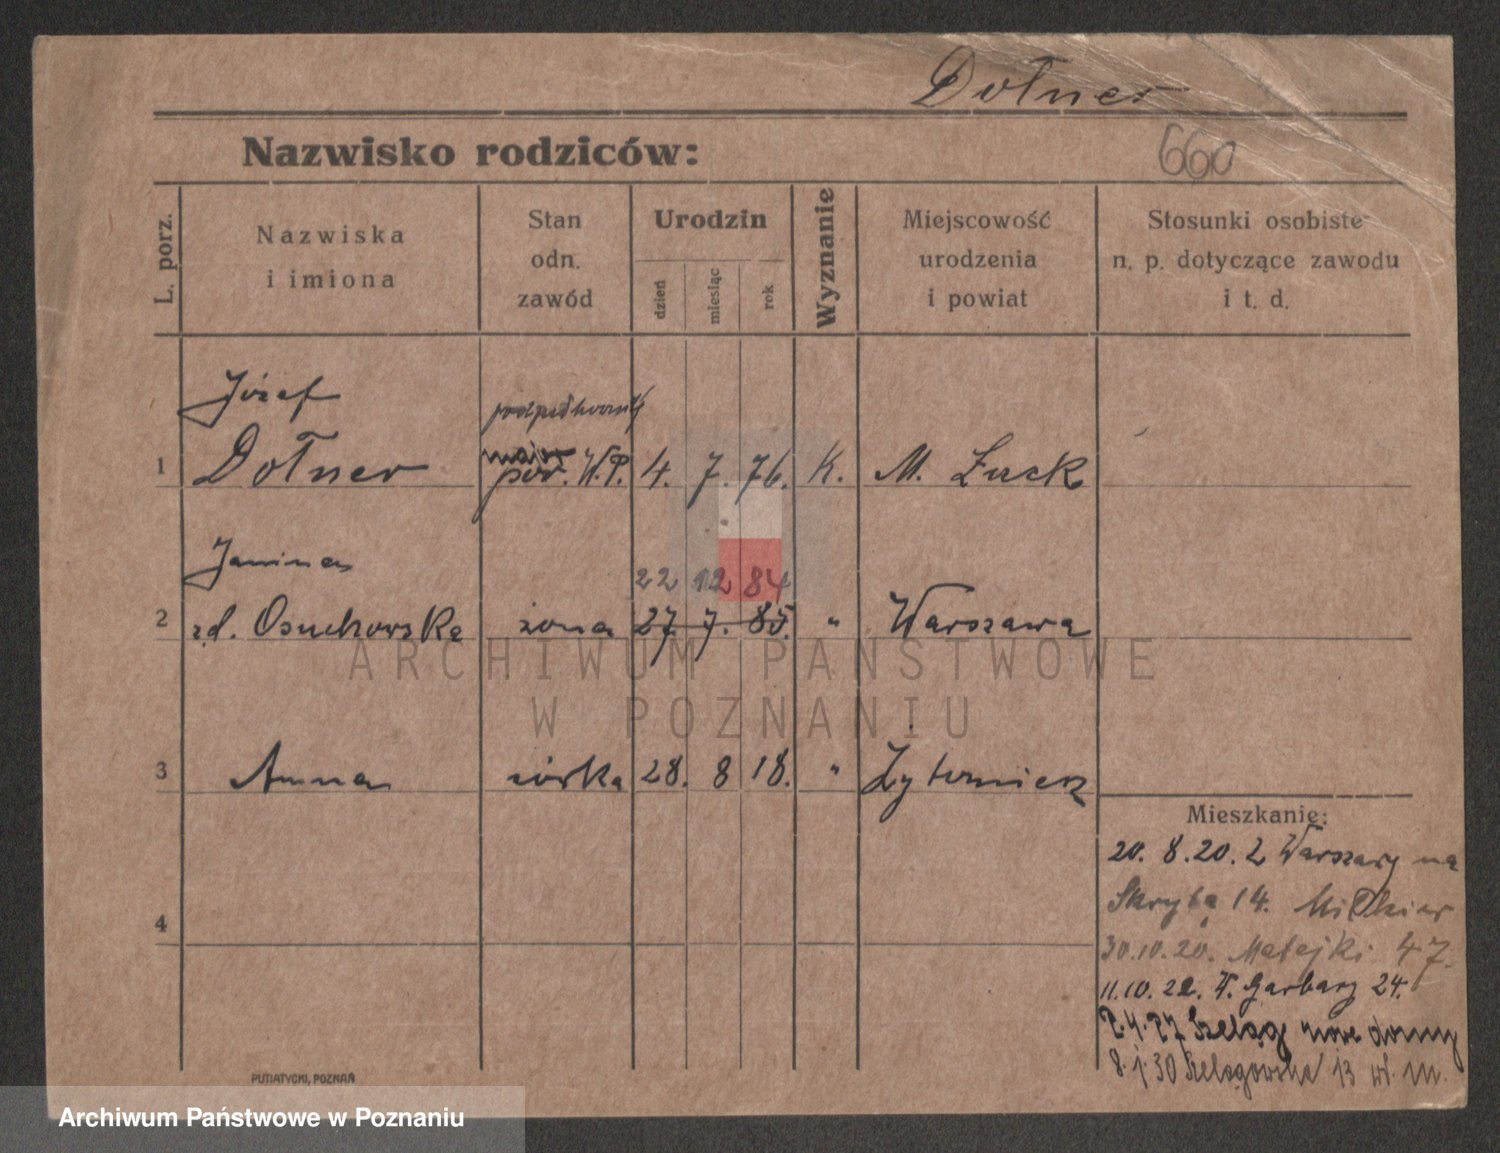 Dołner
Nazwisko rodziców:
660
L. porz.
Nazwiska
i imiona
Stan
odn.
zawód
Urodzin
dzień
miesiąc
rok
Wyznanie
Miejscowość
urodzenia
i powiat
Stosunki osobiste
n. p. dotyczące zawodu
i t. d.
Józef
podpułkownik
major
1 Dołner por. W.P. 4. 7. 76. K. M. Łuck
Janina
22 12 84
2 zd. Osuchowska żona 27 7. 85. " Warszawa
ARCHIWUM PAŃSTWOWE
W POZNANIU
3 Anna córka 28. 8 18. " Żytomierz
Mieszkanie:
20. 8. 20. z Warszawy na
Skrytą 14.
4
30.10.20. Matejki 47.
11.10.22. W. Garbary 24.
2.4.27 Szeląg nowe domy
8.1.30 Szelągowska 13 wł. m.
PUTIATYCKI, POZNAŃ
Archiwum Państwowe w Poznaniu